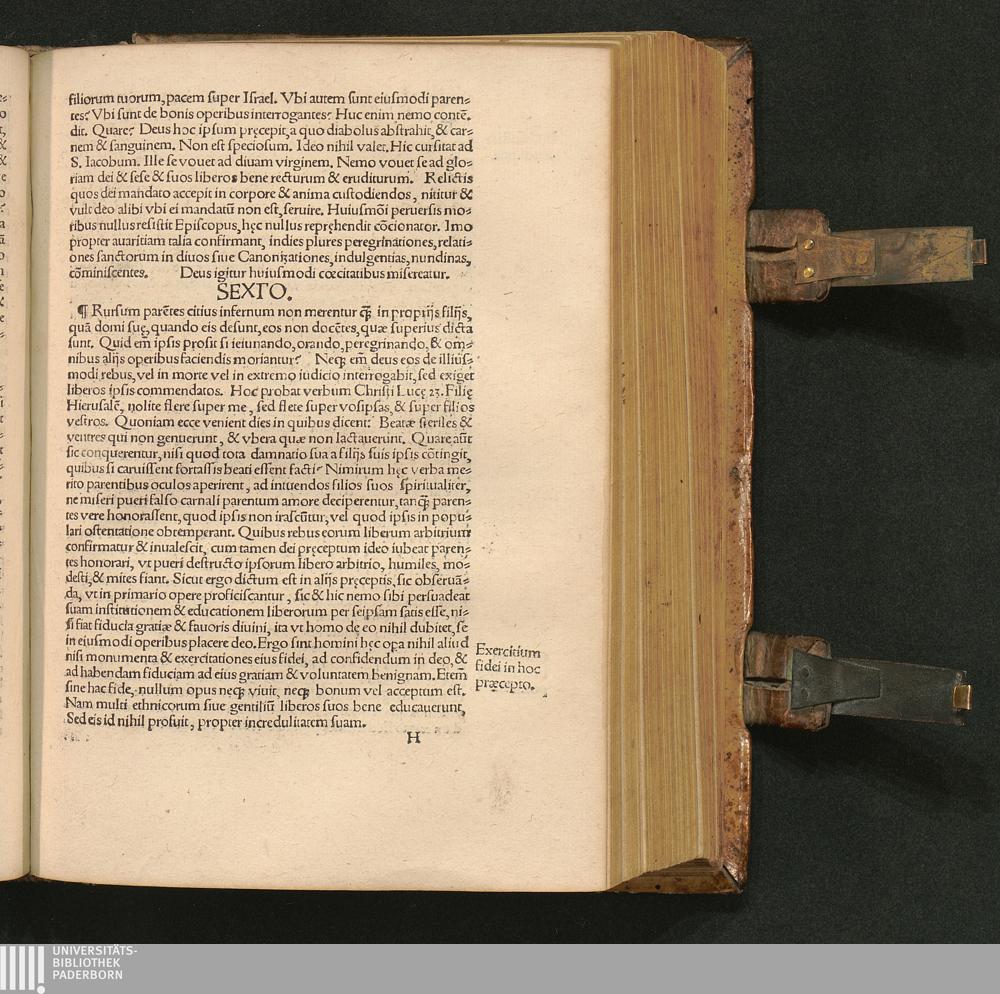 filiorum tuorum, pacem super Israel. Vbi autem sunt eiusmodi paren=
tes? Vbi sunt de bonis operibus interrogantes? Huc enim nemo contē.
dit. Quare? Deus hoc ipsum pręcepit, a quo diabolus abstrahit, & car=
nem & sanguinem. Non est speciosum. Ideo nihil valet. Hic cursitat ad
S. Iacobum. Ille se vouet ad diuam virginem. Nemo vouet se ad glo=
riam dei & sese & suos liberos bene recturum & eruditurum. Relictis
quos dei mandato accepit in corpore & anima custodiendos, nititur &
vult deo alibi vbi ei mandatū non est, seruire. Huiusmōi peruersis mo=
ribus nullus resistit Episcopus, hęc nullus repręhendit cōcionator. Imo
propter auaritiam talia confirmant, indies plures peregrinationes, relati=
ones sanctorum in diuos siue Canonizationes, indulgentias, nundinas,
cōminiscentes. Deus igitur huiusmodi cœcitatibus misereatur.
SEXTO.
¶ Rursum parētes citius infernum non merentur ꝙ̄ in proprijs filijs,
quā domi suę, quando eis desunt, eos non docētes, quæ superius dicta
sunt. Quid em̄ ipsis prosit si ieiunando, orando, peregrinando, & om=
nibus alijs operibus faciendis moriantur? Neqꝫ em̄ deus eos de illius=
modi rebus, vel in morte vel in extremo iudicio interrogabit, sed exiget
liberos ipsis commendatos. Hoc probat verbum Christi Lucę 23. Filię
Hierusalē, nolite flere super me, sed flete super vosipsas, & super filios
vestros. Quoniam ecce venient dies in quibus dicent: Beatæ steriles &
ventres qui non genuerunt, & vbera quæ non lactauerunt. Quare aūt
sic conquerentur, nisi quod tota damnatio sua a filijs suis ipsis cōtingit,
quibus si caruissent fortassis beati essent facti? Nimirum hęc verba me=
rito parentibus oculos aperirent, ad intuendos filios suos spiritualiter,
ne miseri pueri falso carnali parentum amore deciperentur, tanꝙ̄ paren=
tes vere honorassent, quod ipsis non irascūtur, vel quod ipsis in popu=
lari ostentatione obtemperant. Quibus rebus eorum liberum arbitrium
confirmatur & inualescit, cum tamen dei pręceptum ideo iubeat paren=
tes honorari, vt pueri destructo ipsorum libero arbitrio, humiles, mo=
desti, & mites fiant. Sicut ergo dictum est in alijs pręceptis, sic obseruā=
da, vt in primario opere proficiscantur, sic & hic nemo sibi persuadeat
suam institutionem & educationem liberorum per seipsam satis esse, ni=
si fiat fiducia gratiæ & fauoris diuini, ita vt homo de eo nihil dubitet, se
in eiusmodi operibus placere deo. Ergo sint homini hęc opa nihil aliud
nisi monumenta & exercitationes eius fidei, ad confidendum in deo, &
ad habendam fiduciam ad eius gratiam & voluntatem benignam. Etem̄
sine hac fide, nullum opus neqꝫ viuit, neqꝫ bonum vel acceptum est.
Nam multi ethnicorum siue gentiliū liberos suos bene educauerunt,
Sed eis id nihil profuit, propter incredulitatem suam.
Exercitium
fidei in hoc
præcepto.
H
UNIVERSITÄTS-
BIBLIOTHEK
PADERBORN